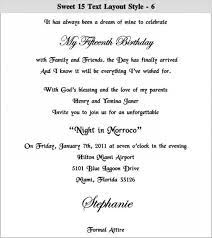 Sweet 15 Text Layout Style - 6
It has always been a dream of mine to celebrate
My Fifteenth Birthday
with Family and Friends, the Day has finally arrived
And I know it will be everything I've wished for.
With God's blessing and the love of my parents
Henry and Yemina Janer
Invite you to share a special evening
"Night in Morroco"
On Friday, January 7th, 2011 at seven o'clock in the evening
Hilton Miami Airport
5101 Blue Lagoon Drive
Miami, Florida 33126
Stephanie
Formal Attire